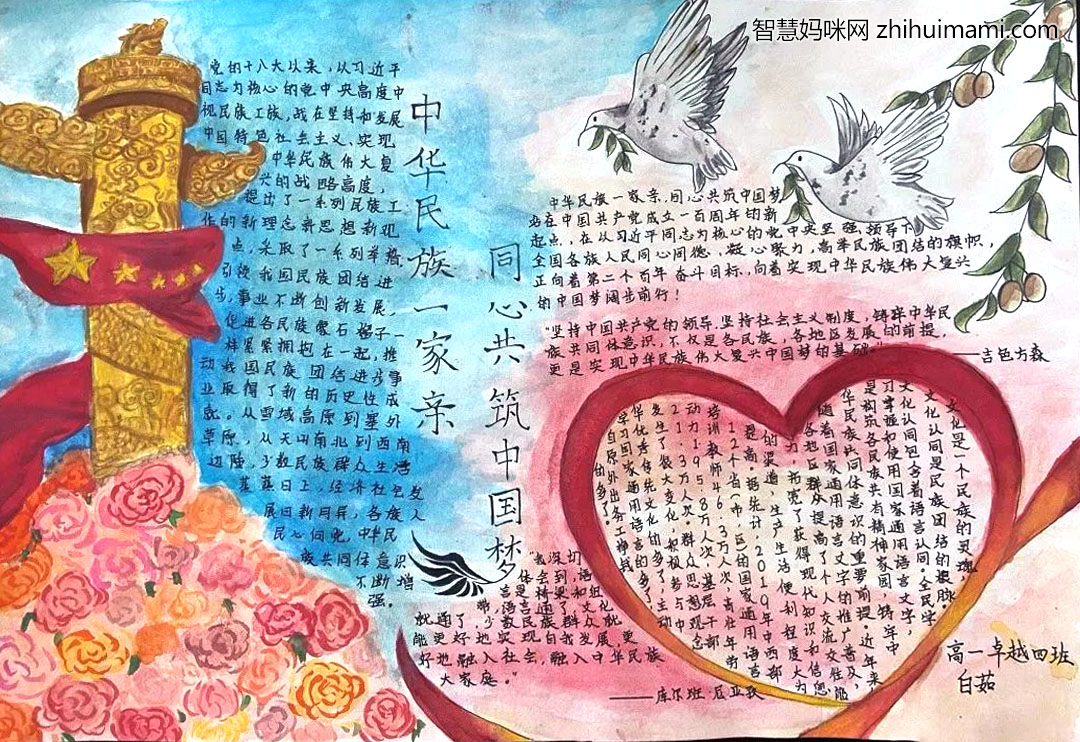 智慧妈咪网 zhihuimami.com
党的十八大以来，从习近平
同志为核心的党中央高度中
视民族工族，战在坚持和发展
中国特色社会主义、实现
中华民族伟大复
兴的战略高度，
提出了一系列民族工
作的新理念新思想新观
点，采取了一系列举措，
引领我国民族团结进
步，事业不断创新发展，
促进各民族像石榴子一
样紧紧拥抱在一起，推
动我国民族团结进步事
业取得了新的历史性成
就。从雪域高原到塞外
草原，从天山南北到西南
边陲，少数民族群众生活
蒸蒸日上，经济社会发
展日新月异，各族人
民心向党，中华民
族共同体意识
不断增
强。
中华民族一家亲
同心共筑中国梦
中华民族一家亲，同心共筑中国梦
站在中国共产党成立一百周年的新
起点，在从习近平同志为核心的党中央坚强领导下
全国各族人民同心同德，凝心聚力，高举民族团结的旗帜，
正向着第二个百年奋斗目标，向着实现中华民族伟大复兴
的中国梦阔步前行！
"坚持中国共产党的领导，坚持社会主义制度，铸牢中华民
族共同体意识，不仅是各民族，各地区发展的前提，
更是实现中华民族伟大复兴中国梦的基础。"
——吉色方森
文化是一个民族的灵魂，
文化认同是民族团结的根脉。
文化认同包含着语言认同，全民学
习掌握和使用国家通用语言文字，
是构筑各民族共有精神家园，铸牢中
华民族共同体意识的重要前提。近年来，
随着国家通用语言文字的推广普及，
各地区群众提高了个人交流交往能
力，拓宽了获得现代知识和信息
的渠道，生产生活便利程度大为
提高。据统计，2019年中西部
12个省（市）区的国家通用语言
培训教师46.3万人次，青壮年劳
动力139.58万人次，基层干部
21.35万人次。群众思想观念
发生了很大变化，积极参与中
华优秀传统文化的多了，主动
学习国家通用语言的多了，
走出原外出务工挣钱
的多了。
"我深切
体会到，语
言是桥梁和纽
带，语言通了，文化
就通了，少数民族群众就
能更好地实现自我发展，更
好地融入社会，融入中华民族
大家庭。"
——库尔班·尼亚孜
高一卓越四班
白茹